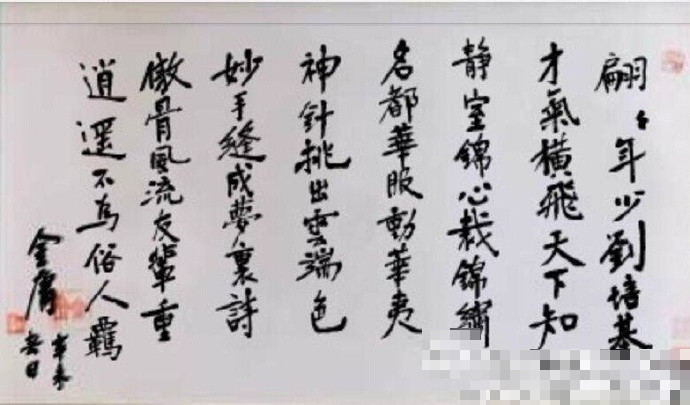 翩〻年少劉培基
才氣橫飛天下知
靜室錦心裁錦繡
名都華服動華夷
神針挑出雲端色
妙手縫成夢裏詩
傲骨風流友輩重
逍遥不為俗人羈
金庸
辛未
春日